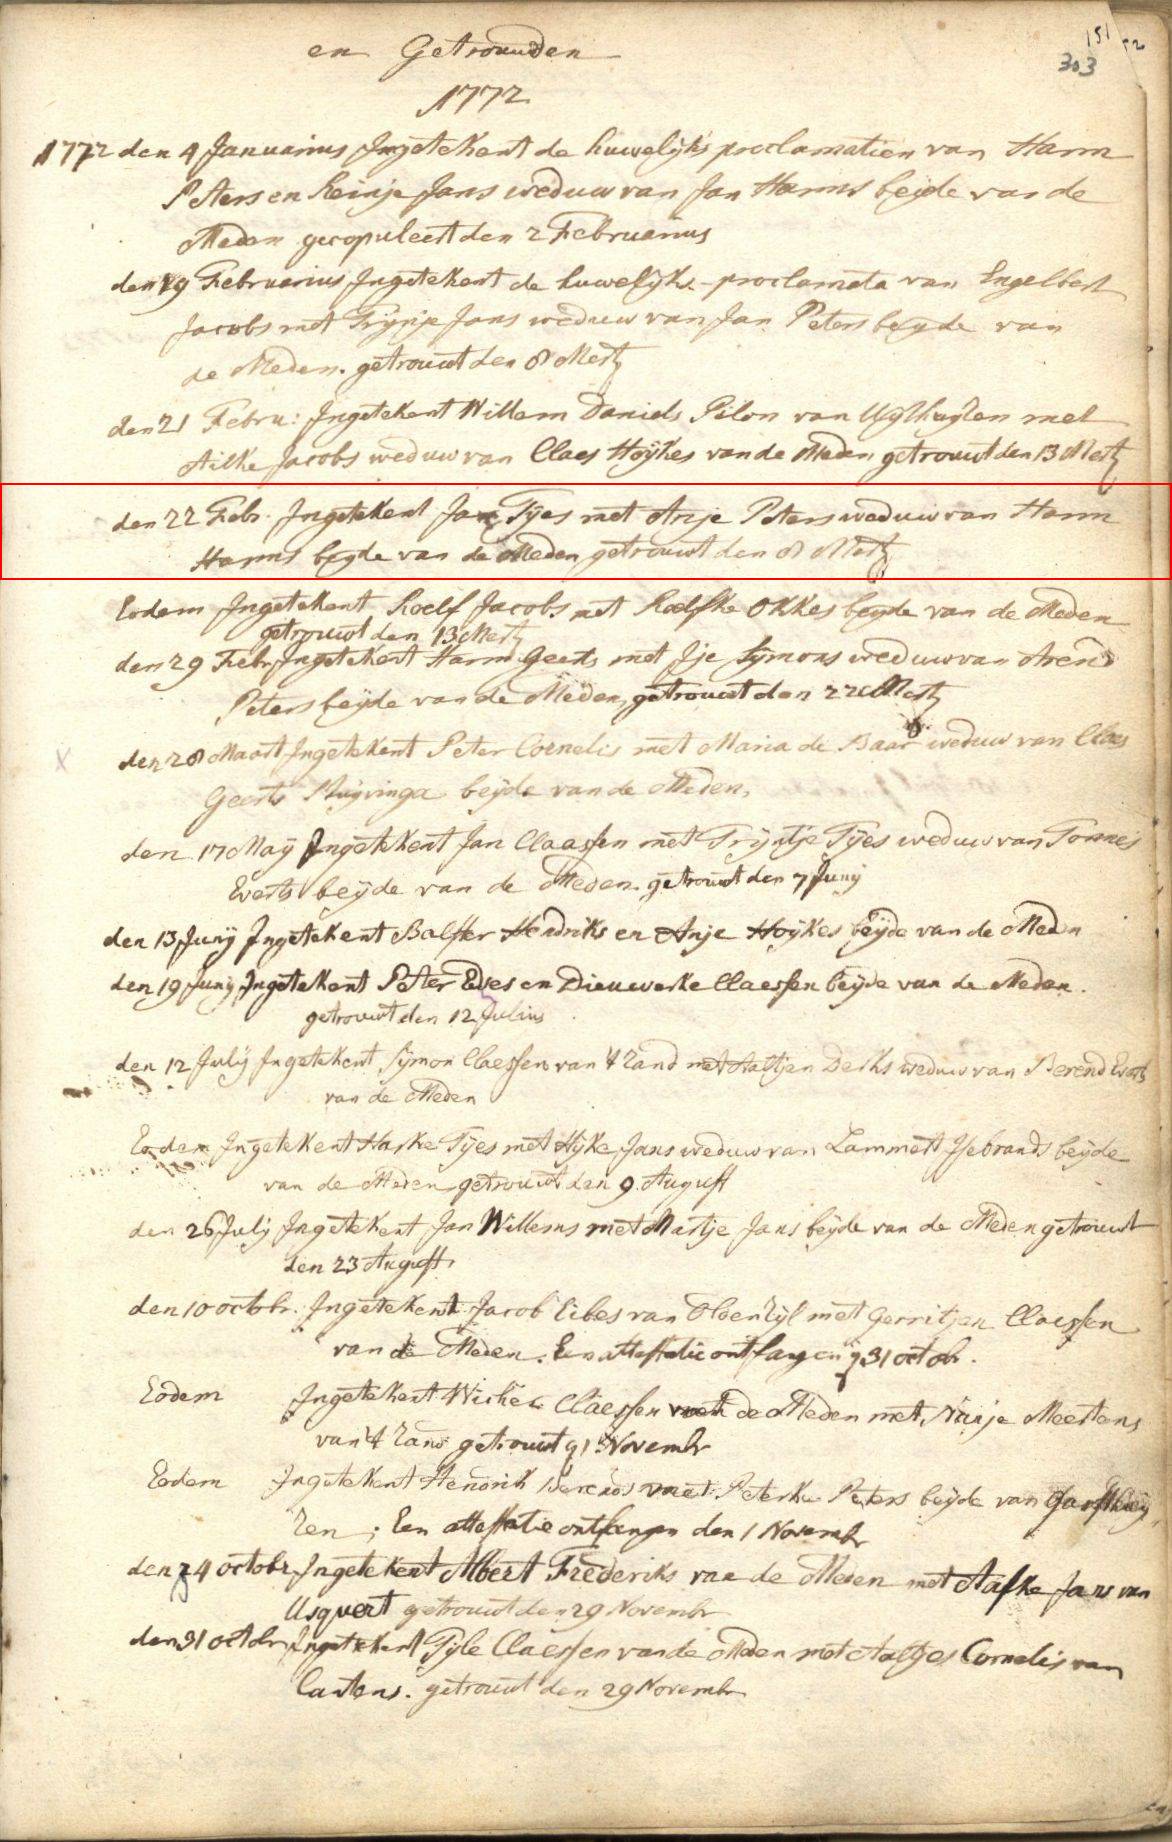 en Getrouwden
151
303
1772
1772 den 4 Januarius Ingetekent de huwelijks proclamatien van Harm
Peters en Reinje Jans weduw van Jan Harms beyde van de
Meden gecopuleert den 2 Februarius
den 19 Februarius Ingetekent de huwelijks-proclamata van Engelbert
Jacobs met Trijnje Jans weduw van Jan Peters beyde van
de Meden. getrouwt den 8 Mert
den 21 Febru: Ingetekent Willem Daniels Pilon van met
Ailke Jacobs weduw van Claes Hoijkes van de Meden getrouwt den 13 Mert
den 22 Febr. Ingetekent Jan Tyes met Anje Peters weduw van Harm
Harms beyde van de Meden getrouwt den 8 Mert
Eodem Ingetekent Roelf Jacobs met Roelfke Okkes beyde van de Meden
getrouwt den 13 Mert
den 29 Febr Ingetekent Harm Geerts met Sijmons weduw van Arend
Peters beyde van de Meden, getrouwt den 22 Mert
den 28 Maart Ingetekent Peter Cornelis met Maria de Baar weduw van Claes
Geerts beyde van de Meden,
den 17 Maij Ingetekent Jan Claassen met Trijntje Tijes weduw van Tonnes
Everts beijde van de Meden. getrouwt den 7 Junij
den 13 Junij Ingetekent Balster Hendriks en Anje Hoijkes beijde van de Meden
den 19 Junij Ingetekent Peter Edses en Dieuwerke Claessen beijde van de Meden.
getrouwt den 12 Julius
den 12 Julij Ingetekent Sijmon Claessen van 't Zand met Aaltjen Derks weduw van Berend Everts
van de Meden
Eodem Ingetekent Harke Tijes met Jans weduw van Lammert Ijsebrands beijde
van de Meden getrouwt den 9 August
den 26 Julij Ingetekent Jan Willems met Martje Jans beijde van de Meden getrouwt
den 23 August.
den 10 octobr. Ingetekent Jacob Eibes van Oldenzijl met Gerritjen Claessen
van de Meden. Een attestatie ontfangen 31 octobr.
Eodem Ingetekent Claessen van de Meden met Meertens
van 't Zand getrouwt 1 Novembr
Eodem Ingetekent Hendrik Berends met Peterke Peters beijde van Garsthuij
zen; Een attestatie ontfangen den 1 Novembr
den 24 octobr Ingetekent Albert Frederiks van de Meden met Aafke Jans van
Usquert getrouwt den 29 Novembr
den 31 octobr Ingetekent Tijle Claessen van de Meden met Aaltjes Cornelis van
Cantens. getrouwt den 29 Novembr